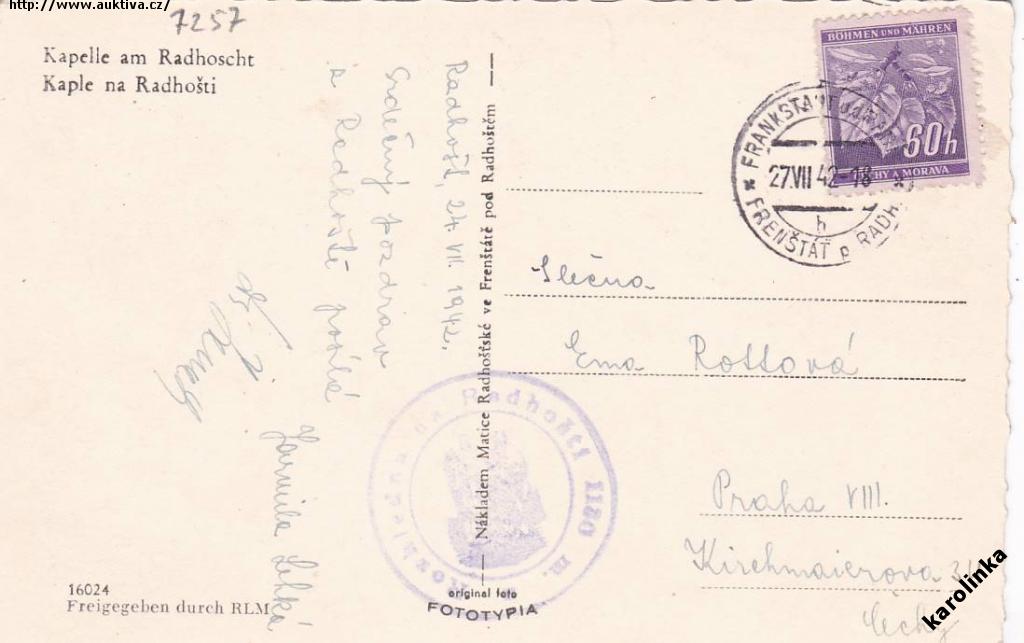 http://www.auktiva.cz/
7257
Kapelle am Radhoscht
Kaple na Radhošti
Radhošť, 24. VII. 1942.
Srdečný pozdrav
z Radhoště posílá
Jarmila
Nákladem Matice Radhošťské ve Frenštátě pod Radhoštěm
BÖHMEN UND MÄHREN
60h
ČECHY A MORAVA
FRANKSTADT
27.VII 42-18
h
FRENŠTÁT p RADH
Slečna
Ema Rottová
Praha VIII.
Kirchmaierova
Čechy
Rozhledna na Radhošti 1130 m.
16024
Freigegeben durch RLM
original foto
FOTOTYPIA
karolinka